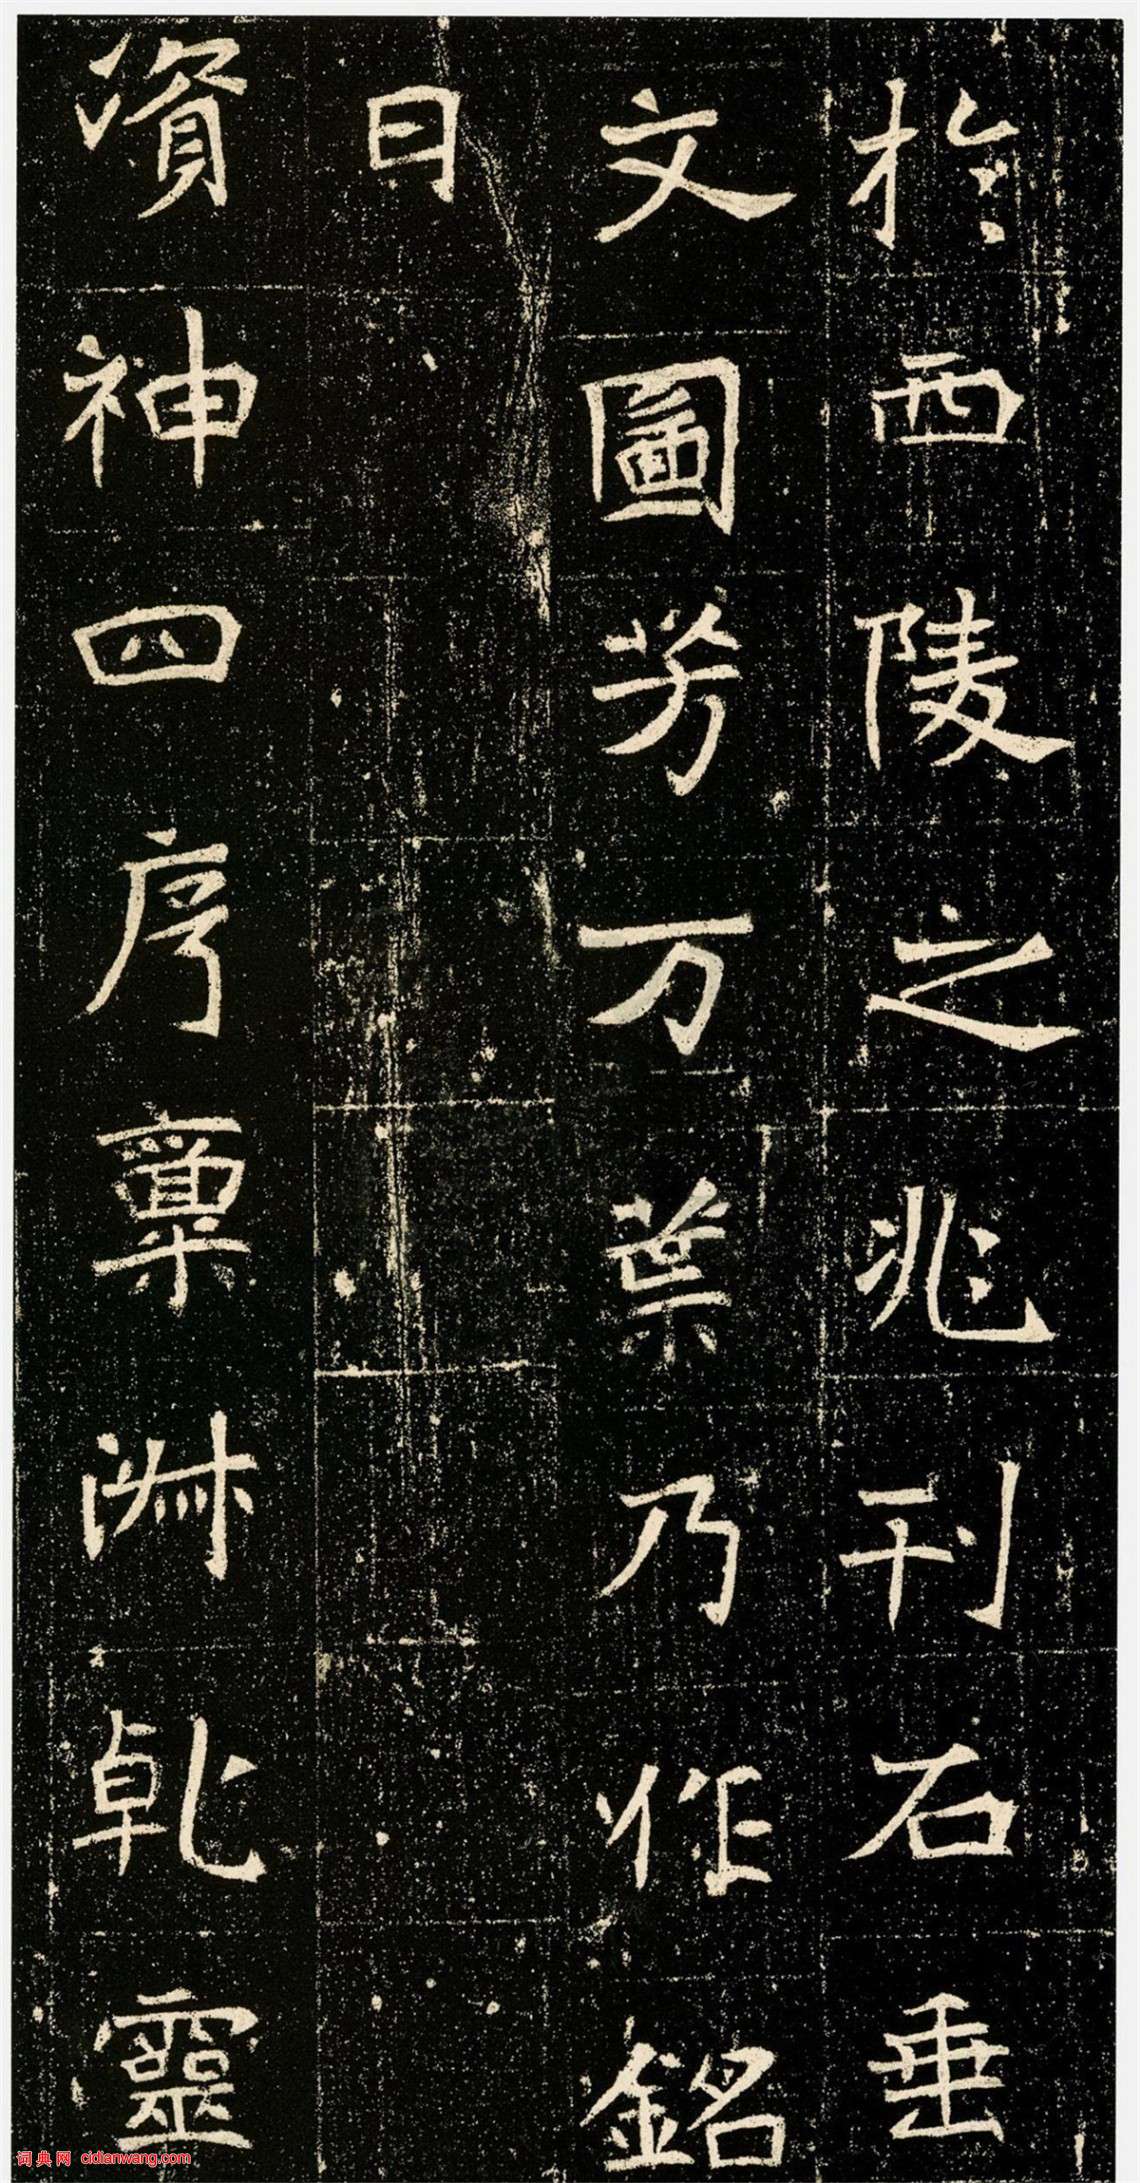 於西陵之兆刊石垂
文圖芳万葉乃作銘
曰
資神四序稟淋乹靈
词典网 cidianwang.com